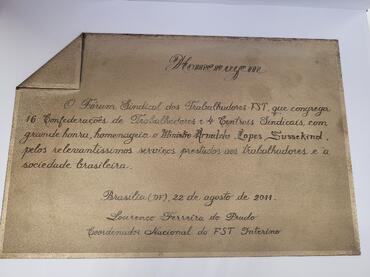 Homenagem
O Fórum Sindical dos Trabalhadores FST, que congrega
16 Confederações de Trabalhadores e 4 Centrais Sindicais, com
grande honra, homenageia o Ministro Arnaldo Lopes Sussekind,
pelos relevantíssimos serviços prestados aos trabalhadores e à
sociedade brasileira.
Brasília (DF), 22 de agosto de 2011.
Lourenço Ferreira do Prado
Coordenador Nacional do FST Interino